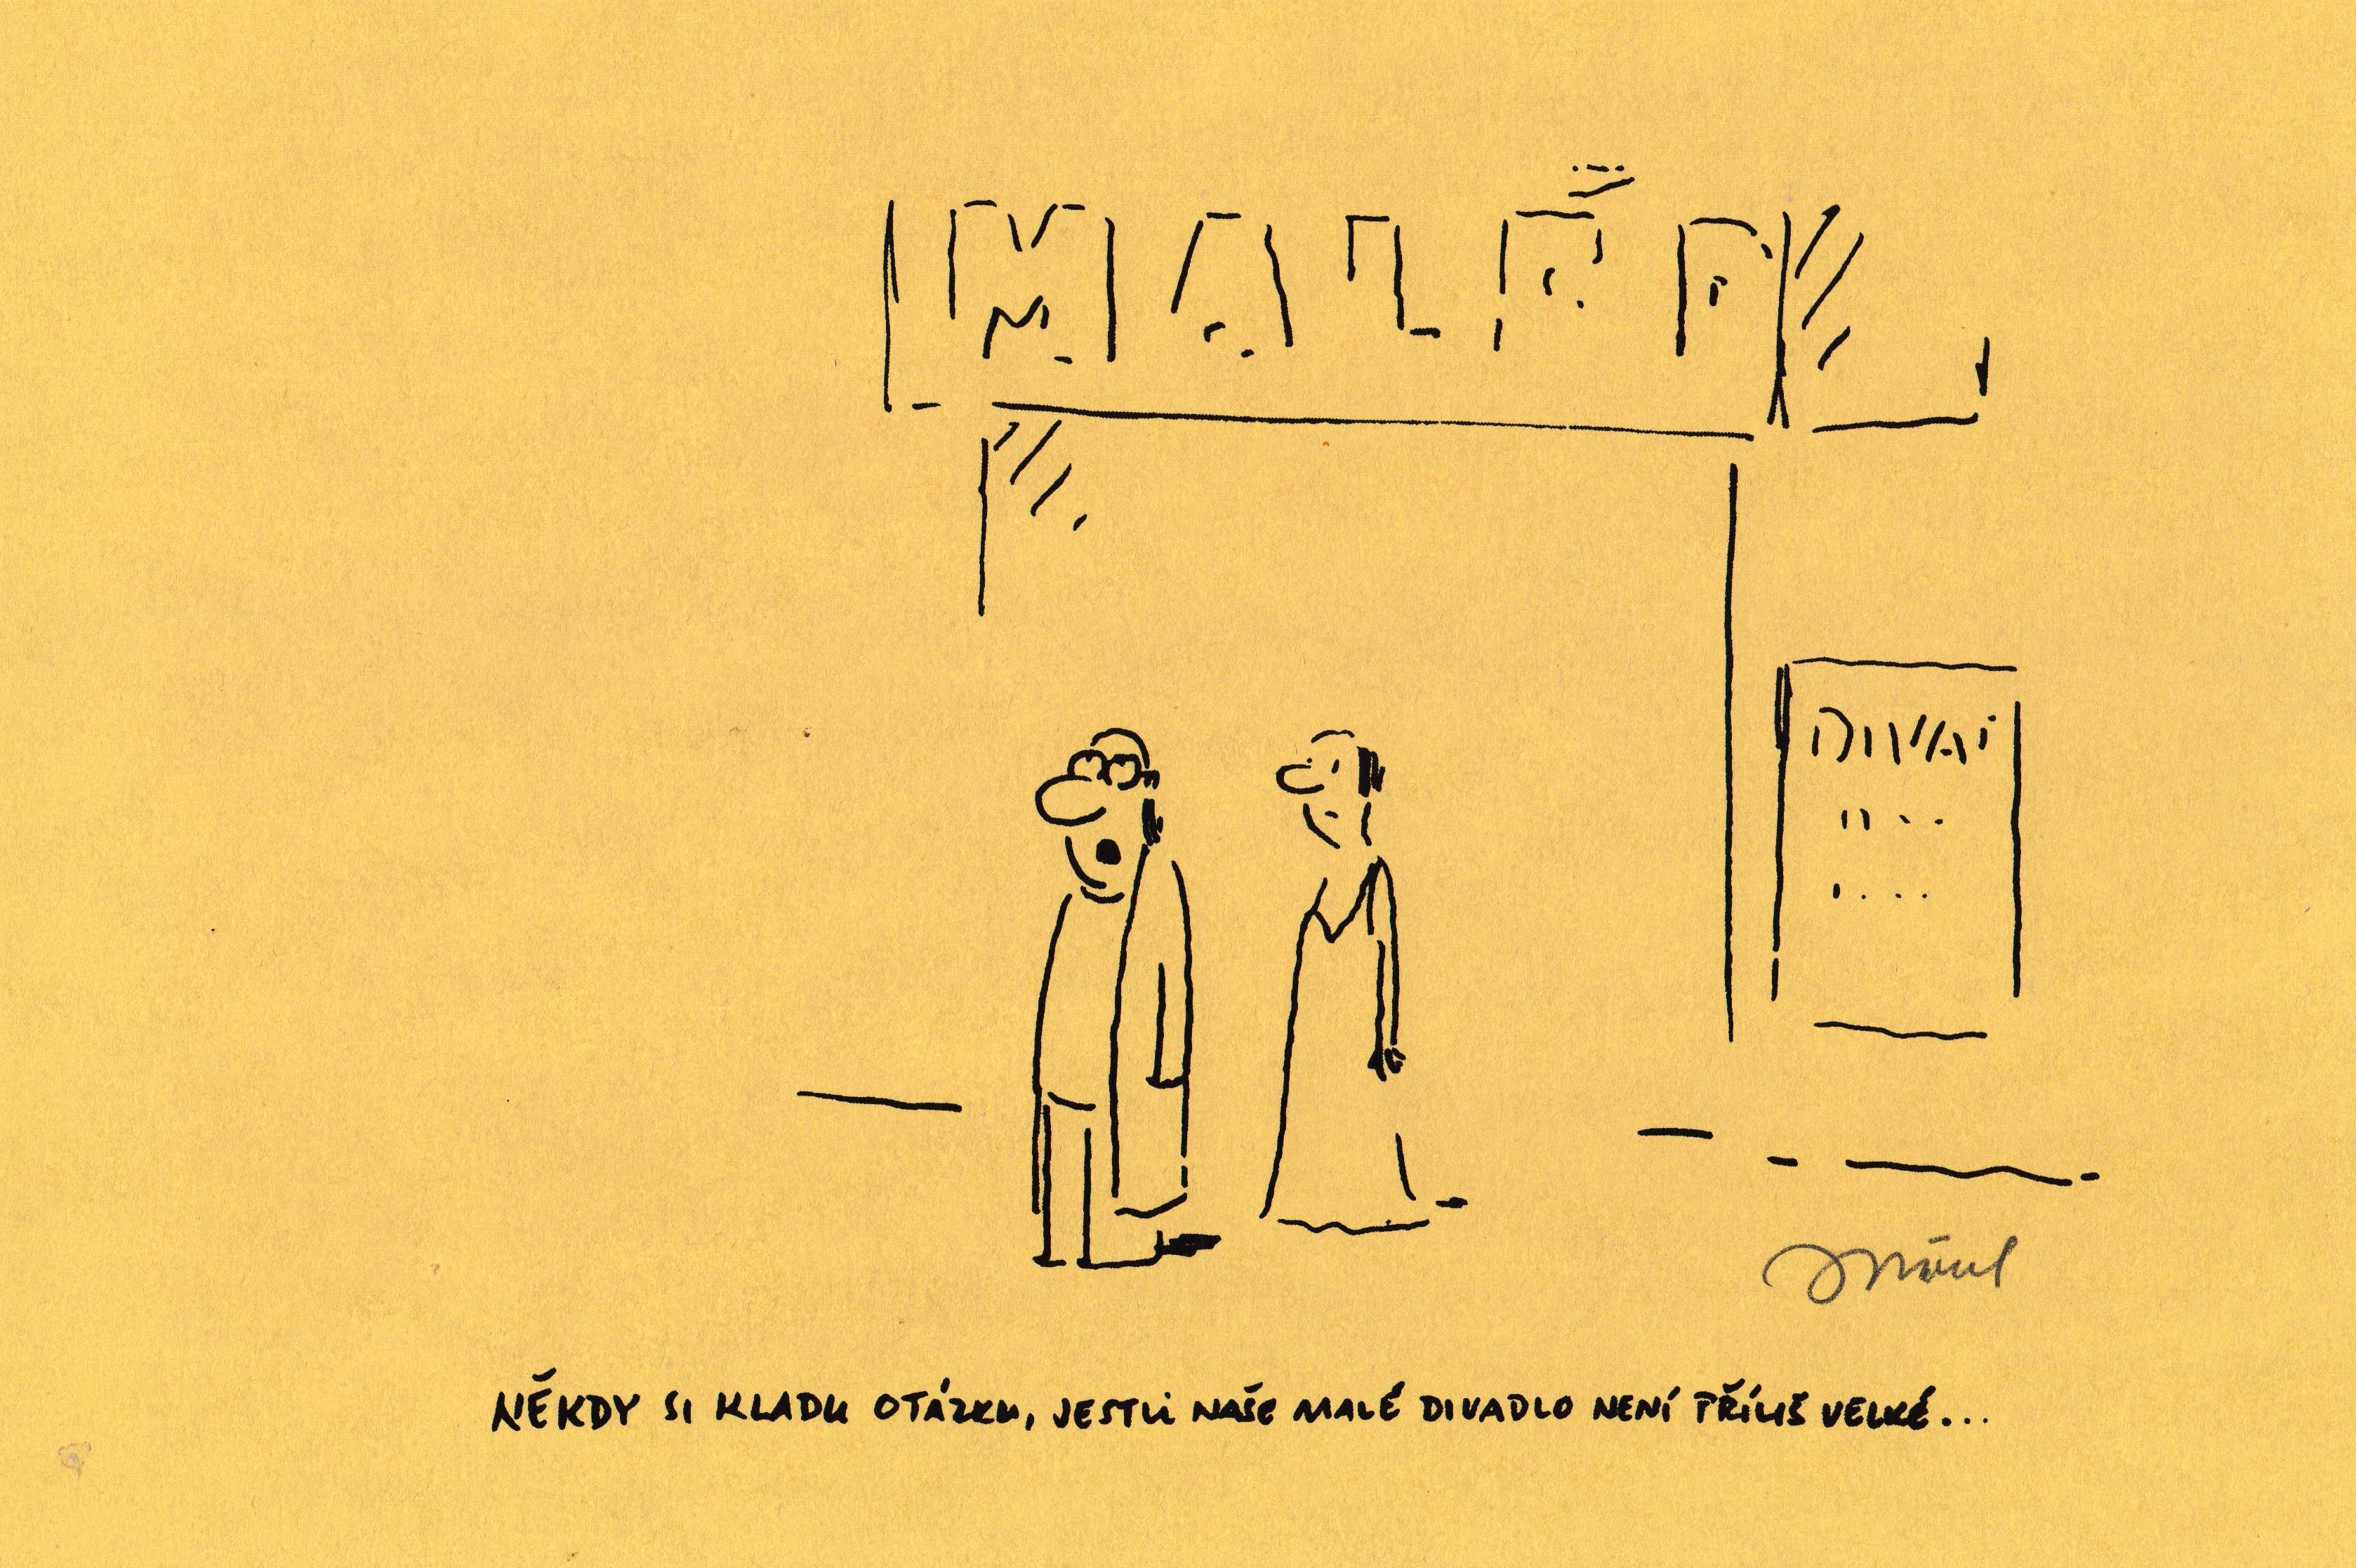 MALÉ D
DIVAD
NĚKDY SI KLADU OTÁZKU, JESTLI NAŠE MALÉ DIVADLO NENÍ PŘÍLIŠ VELKÉ...